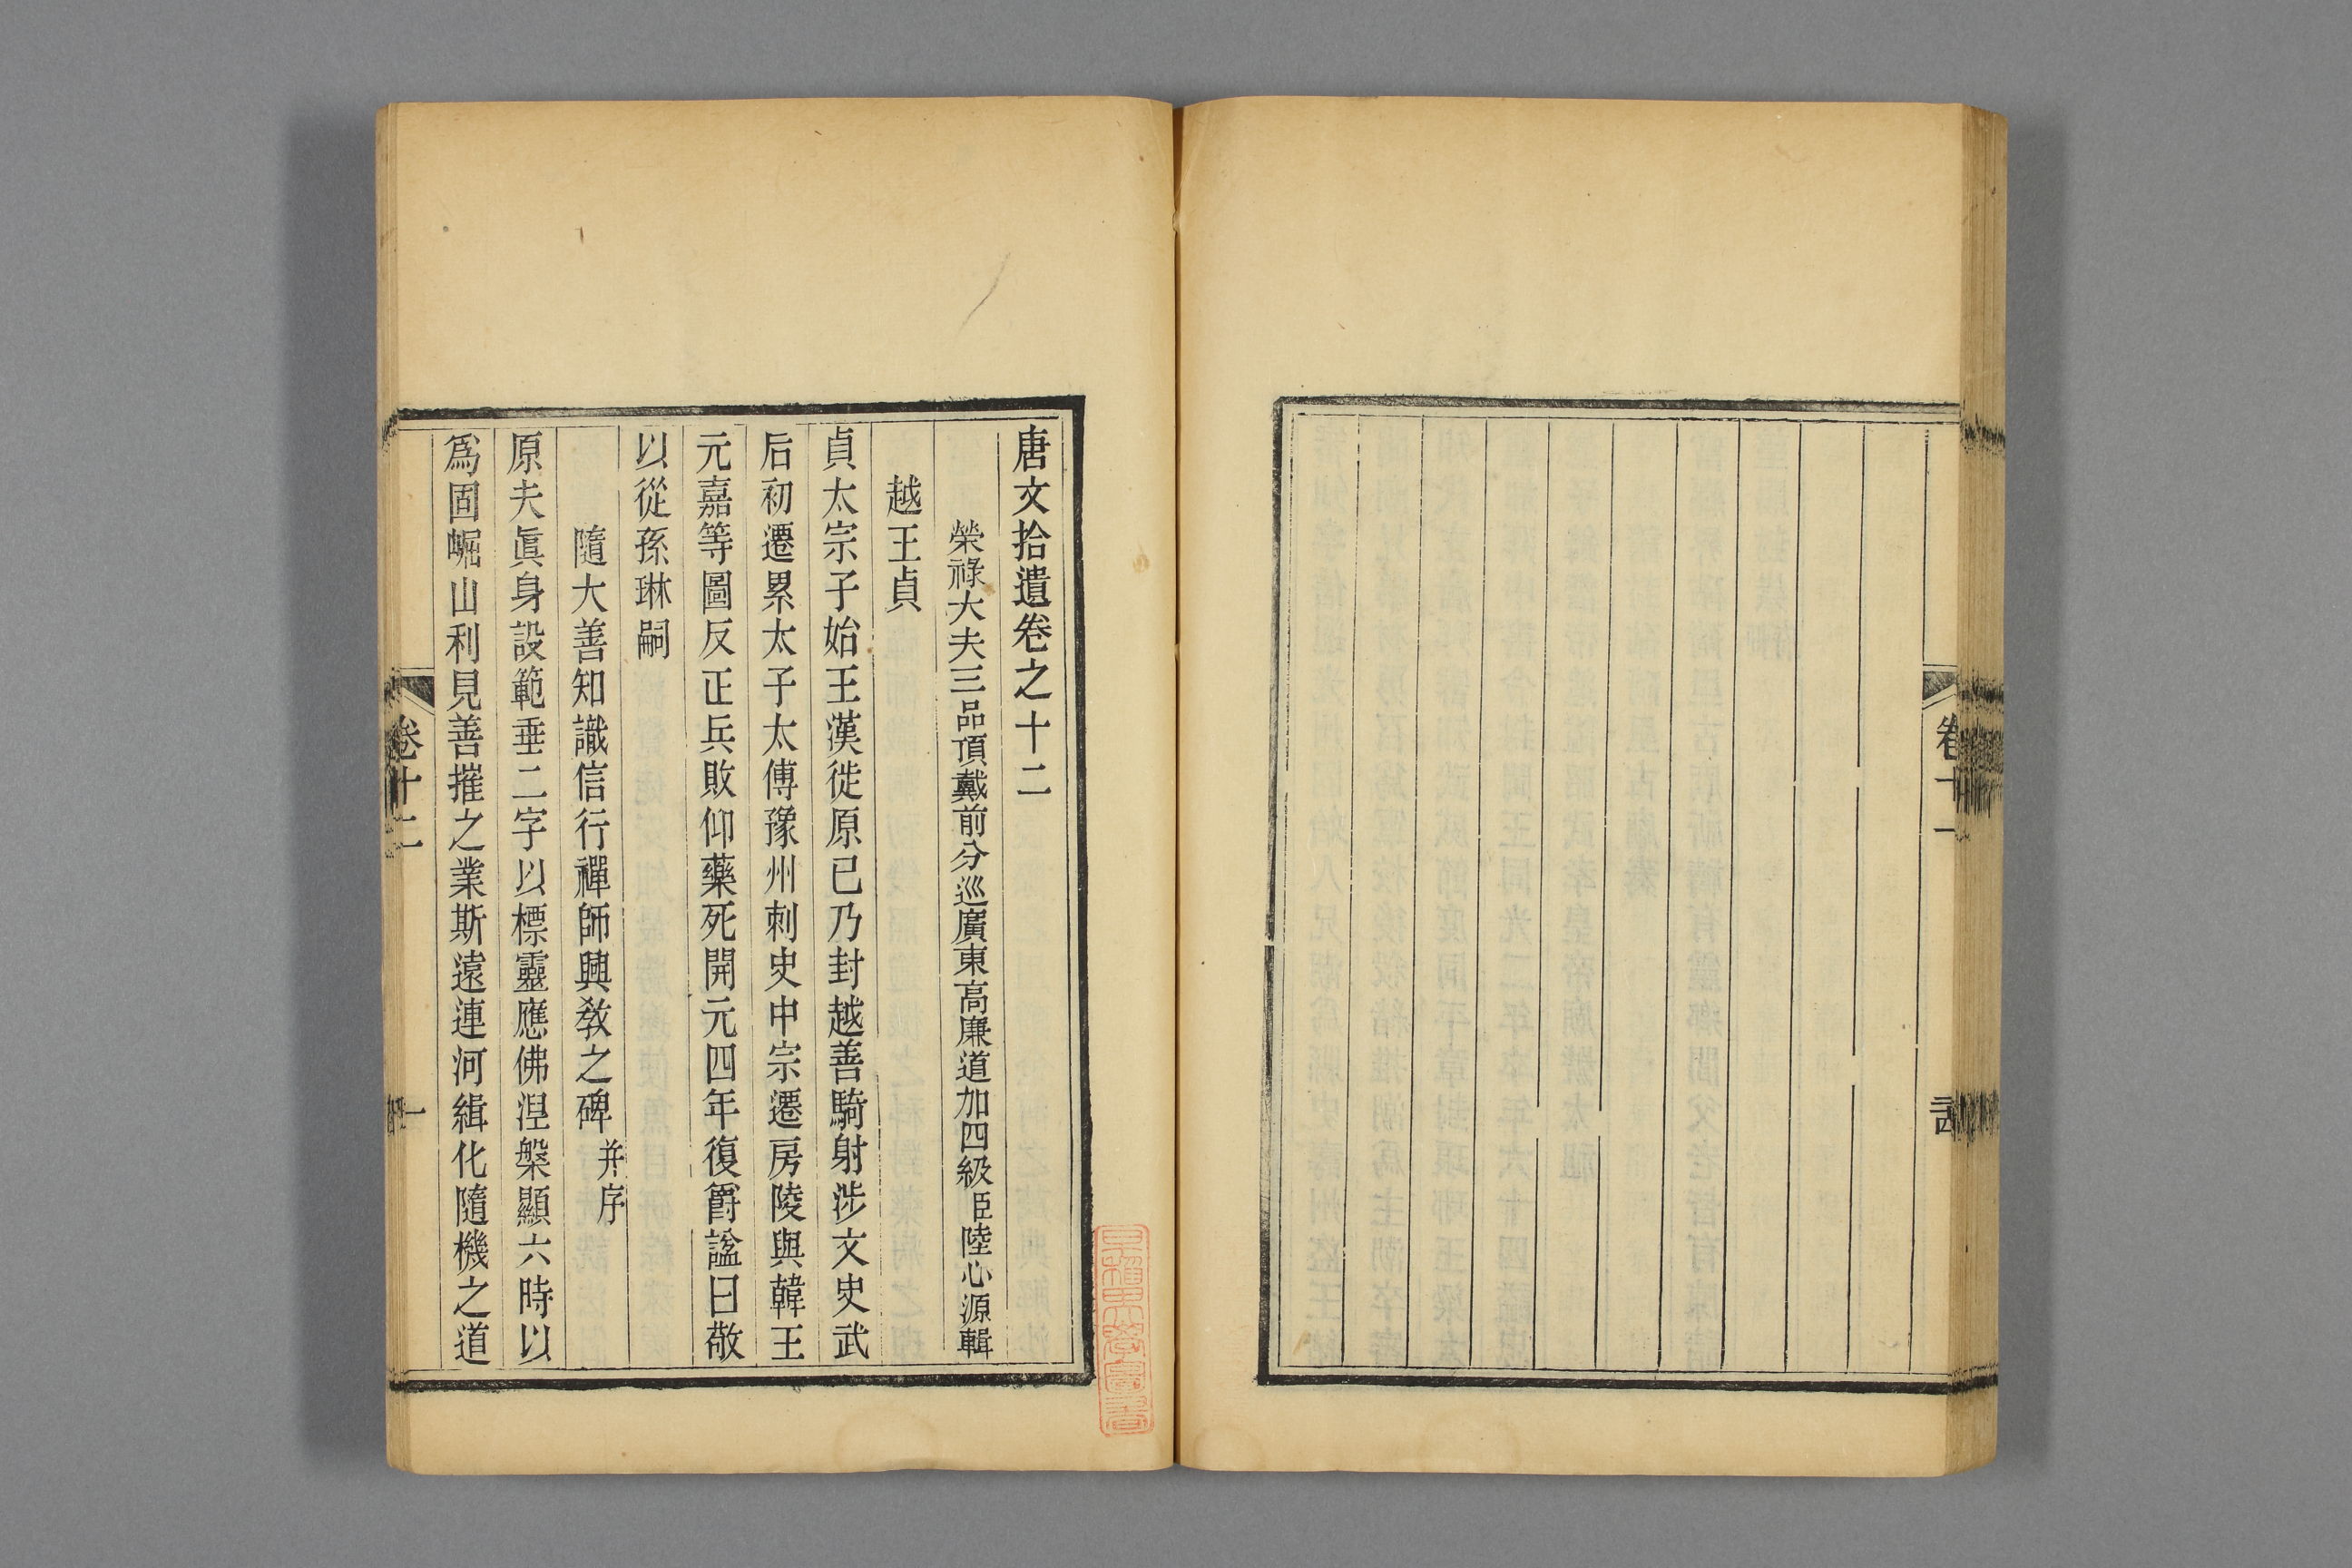 卷十一
唐文拾遺卷之十二
榮祿大夫三品頂戴前分巡廣東高廉道加四級臣陸心源輯
越王貞
貞太宗子始王漢徙原已乃封越善騎射涉文史武
后初遷累太子太傅豫州刺史中宗遷房陵與韓王
元嘉等圖反正兵敗仰藥死開元四年復爵諡曰敬
以從孫琳嗣
隨大善知識信行禪師興教之碑并序
原夫眞身設範垂二字以標靈應佛涅槃顯六時以
爲固崛山利見善摧之業斯遠連河緝化隨機之道
卷十二
一